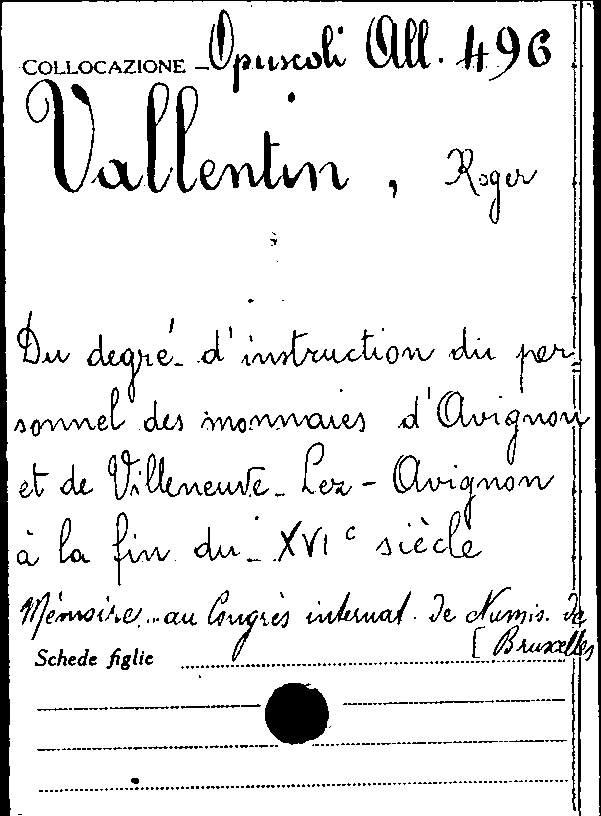 COLLOCAZIONE - Opuscoli All. 496
Vallentin, Roger
Du degré d'instruction du per
sonnel des monnaies d'Avignon
et de Villeneuve-Lez-Avignon
à la fin du XVIe siècle
Mémoire au Congrès internat. de Numis. de
[Bruxelles
Schede figlie